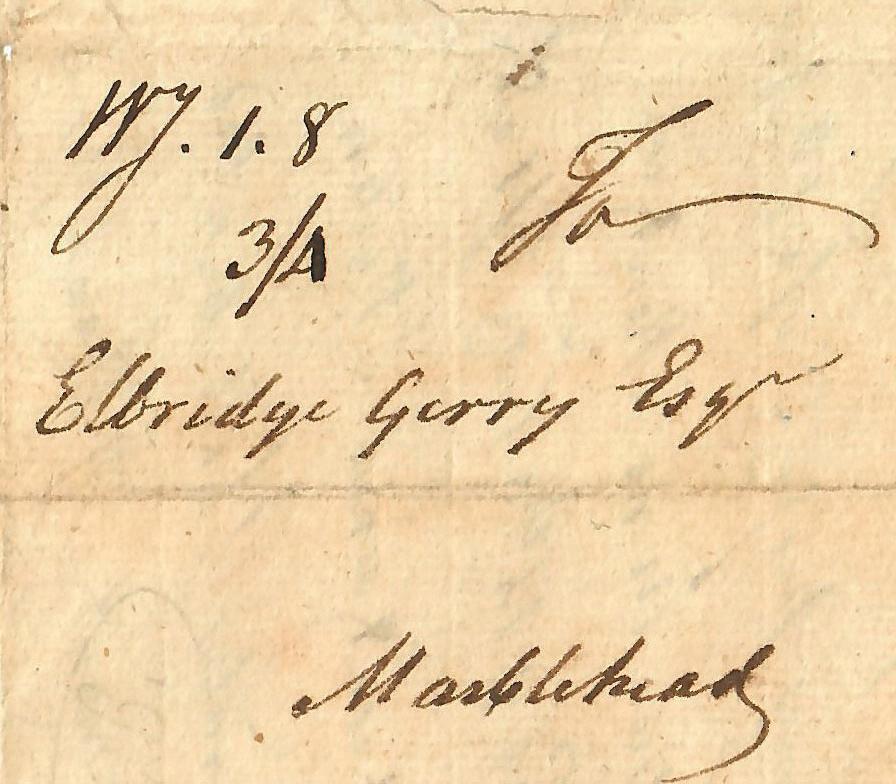 Wy. 1. 8
3/4
To
Elbridge Gerry Esqr
Marblehead